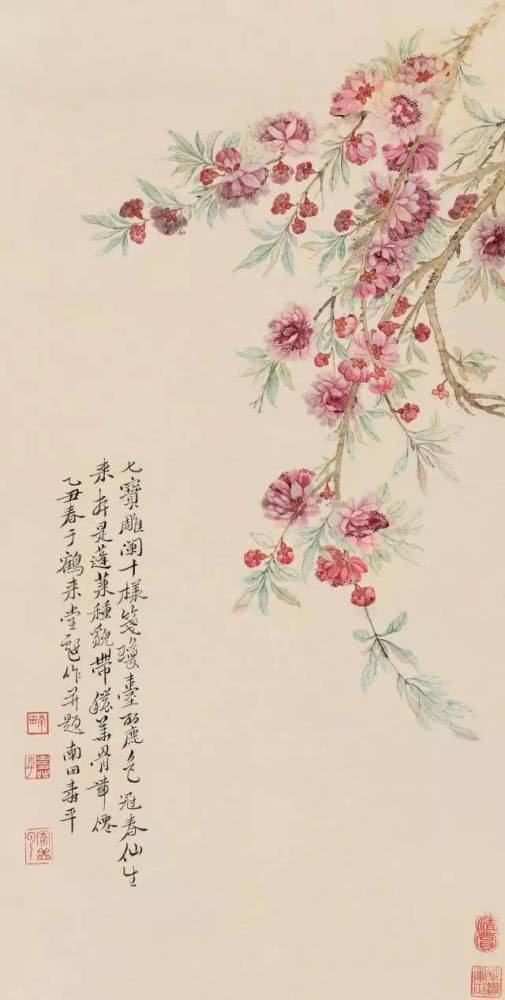 七寶雕闌十樣箋瓊臺麗色冠春仙生
來本是蓬萊種豔帶鐶華骨帶僊
乙丑春于鶴來堂戲作并題南田壽平